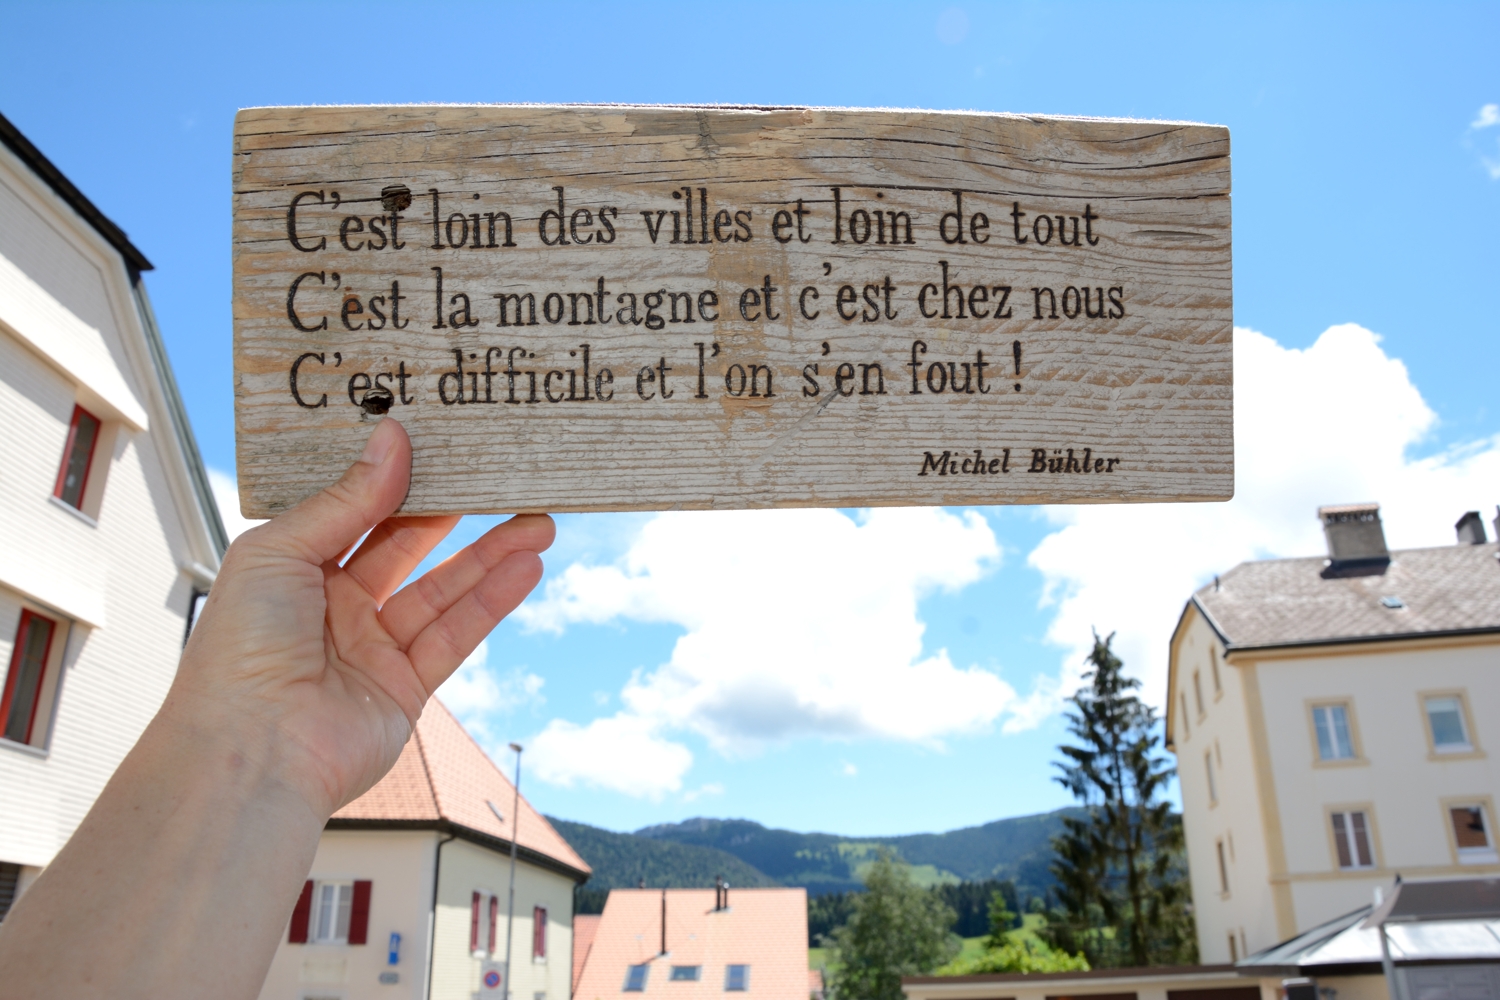 C'est loin des villes et loin de tout
C'est la montagne et c'est chez nous
C'est difficile et l'on s'en fout !
Michel Bühler